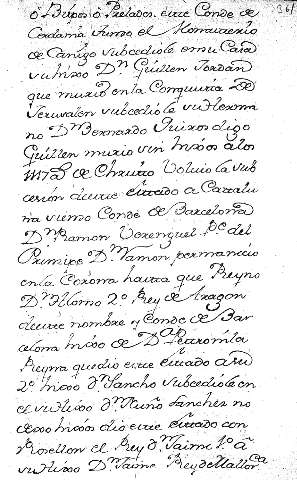 361
o Obispo o Prelados. este Conde de
Cerdania Junto el Monasterio
de Canigo subcediole en su Casa
su hixo Dn Guillen Jordan
que murio en la Conquista de
Jerusalen subcediole su Herma
no Dn Bernardo Guillen digo
Guillen murio sin hixos a los
de Christo Volvio la sub
cesion de este estado a Catalu
ña siendo Conde de Barcelona
Dn Ramon Berenguel Pe del
Principe Dn Ramon permanecio
en la Corona hasta que Reyno
Dn Alonso 2o Rey de Aragon
de este nombre y Conde de Bar
celona hixo de Da Petronila
Reyna que dio este estado a su
2o hixo Dn Sancho subcediole en
el su hixo Dn Nuño Sanchez no
dexo hixos dio este estado con
Rosellon el Rey Dn Jaime 1o a
su hixo Dn Jaime Rey de Mallorca